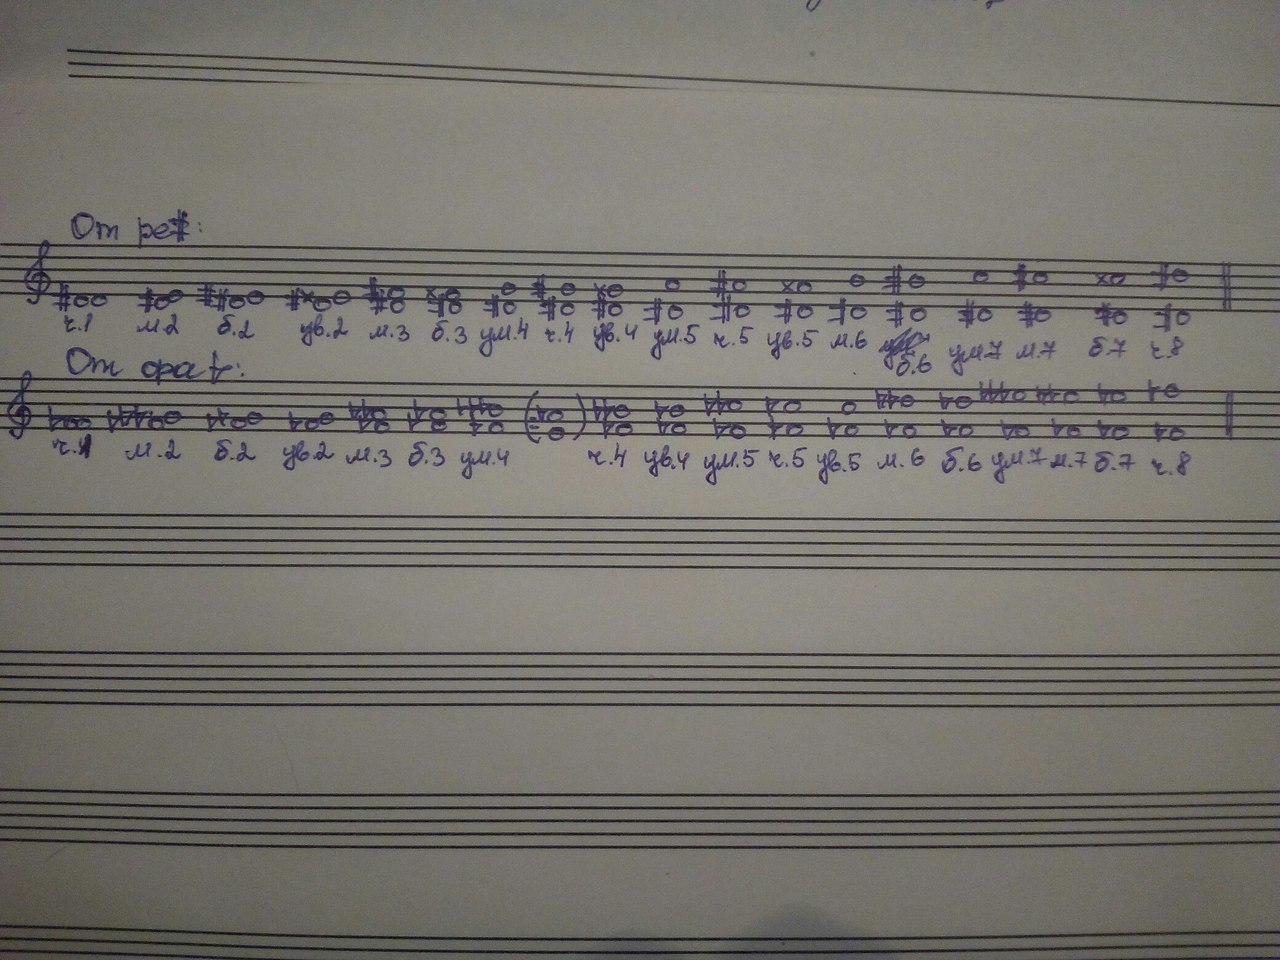 От ре♯:
ч.1 м2 б.2 ув.2 м.3 б.3 ум.4 ч.4 ув.4 ум.5 ч.5 ув.5 м.6 б.6 ум.7 м.7 б.7 ч.8
От фа♭:
ч.1 м.2 б.2 ув.2 м.3 б.3 ум.4 ч.4 ув.4 ум.5 ч.5 ув.5 м.6 б.6 ум.7 м.7 б.7 ч.8